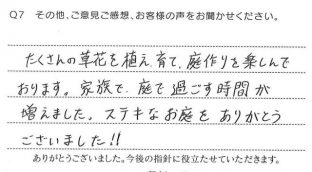 Q7 その他、ご意見ご感想、お客様の声をお聞かせください。
たくさんの草花を植え、育て、庭作りを楽しんで
おります。家族で、庭で過ごす時間が
増えました。ステキなお庭をありがとう
ございました!!
ありがとうございました。今後の指針に役立たせていただきます。